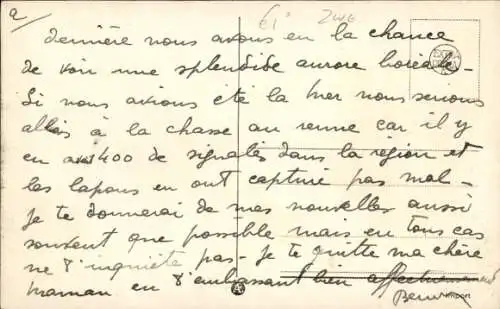 2/ 61° 2W6
dernière nous avons eu la chance
de voir une splendide aurore boréale -
Si nous avions été la hier nous serions
allés à la chasse au renne car il y
en a 400 de signalés dans la région et
les lapons en ont capturé pas mal -
Je te donnerai de mes nouvelles aussi
souvent que possible mais en tous cas
ne t'inquiète pas - Je te quitte ma chère
maman en t'embrassant bien affectueusement